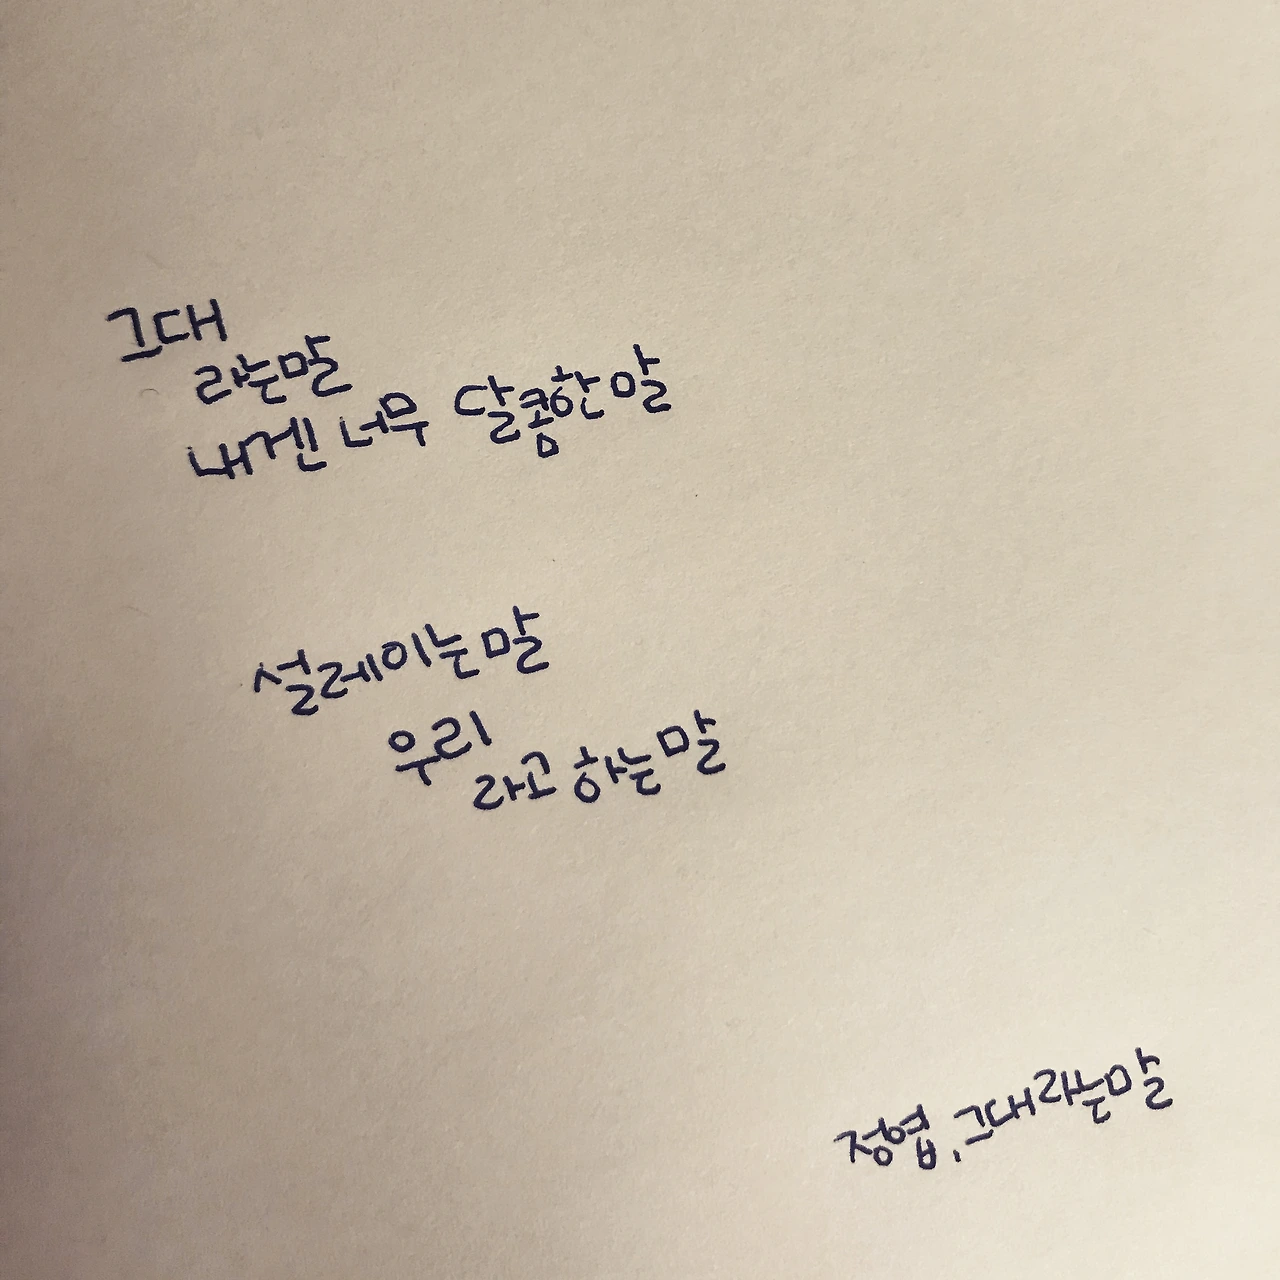 그대
라는말
내겐 너무 달콤한 말
설레이는 말
우리
라고 하는 말
정엽, 그대라는말